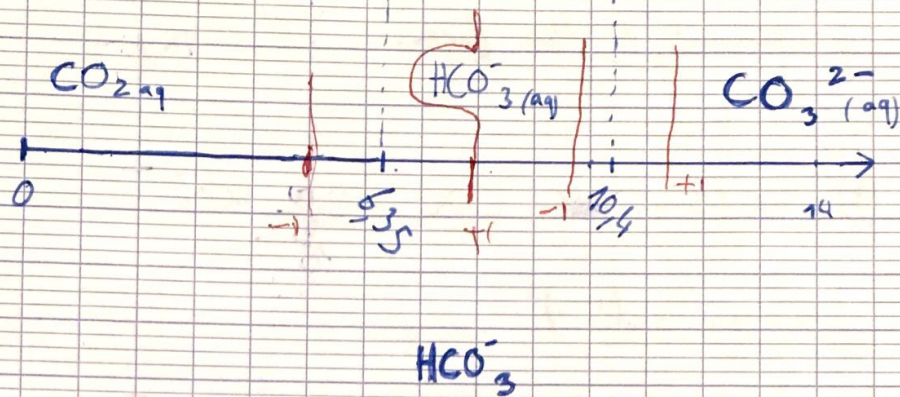 CO₂ aq HCO₃⁻ (aq) CO₃²⁻ (aq)
0 -1 6,35 +1 -1 10,4 +1 14
HCO₃⁻